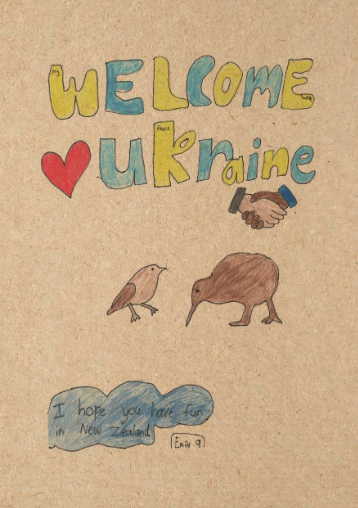 WELCOME
uKraine
I hope you have fun
in New Zealand